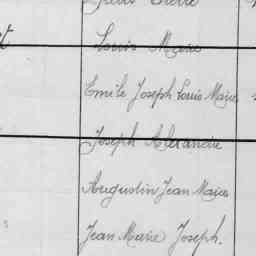 Louis Marie
Emile Joseph Louis Marie
Joseph Alexandre
Augustin Jean Marie
Jean Marie Joseph.